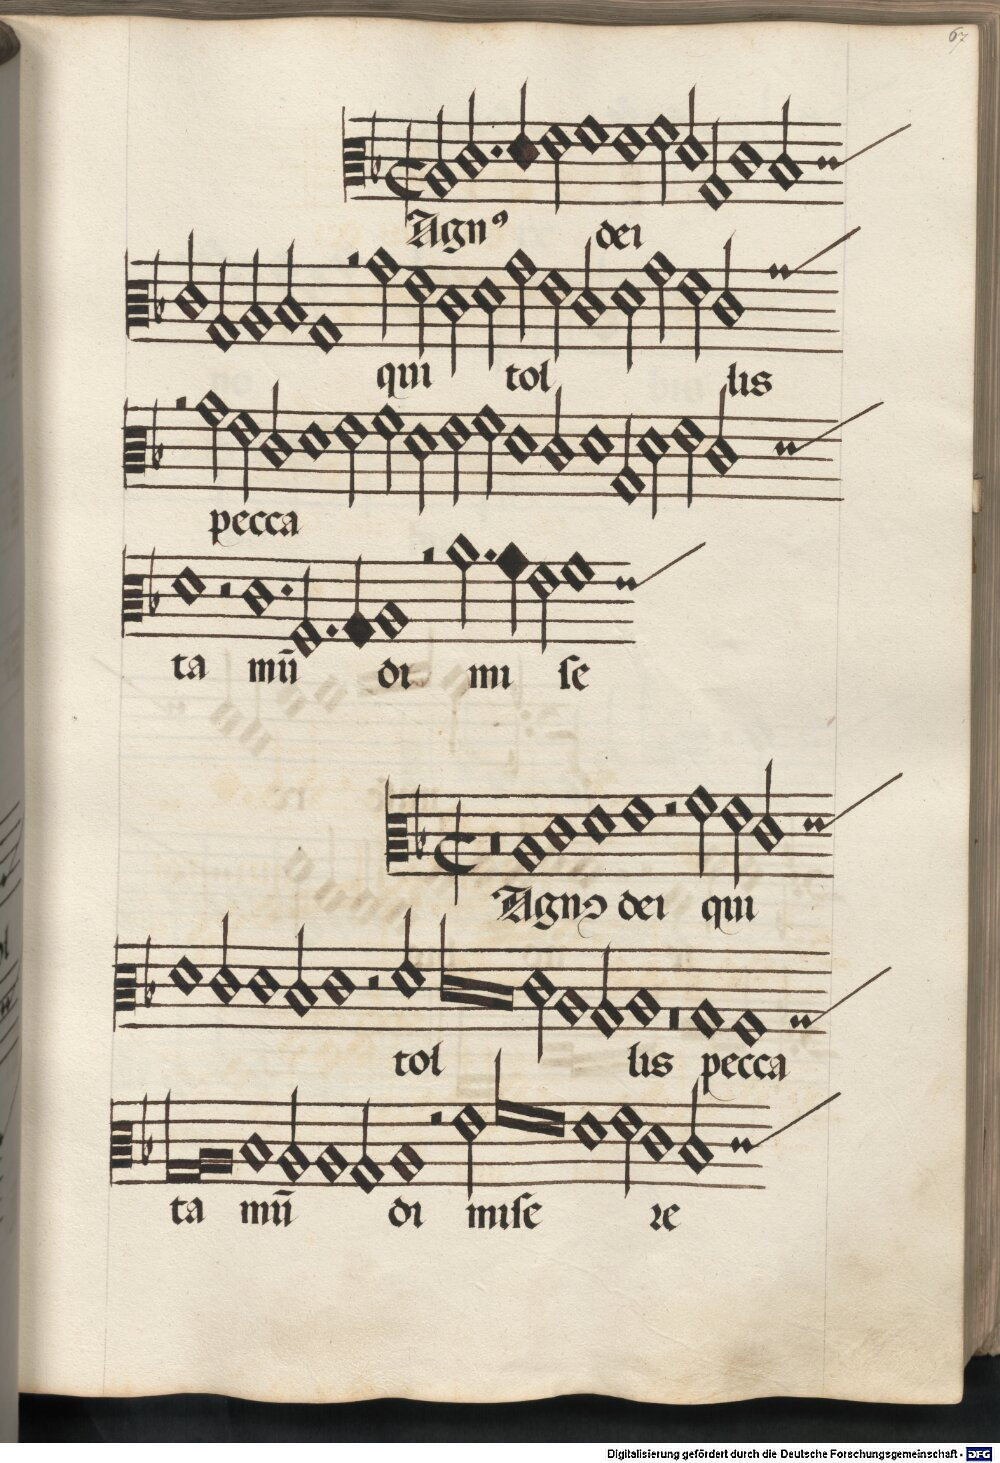 67
Agnꝰ dei
qui tol lis
pecca
ta mū di mi se
Agnꝰ dei qui
tol lis pecca
ta mū di mise re
Digitalisierung gefördert durch die Deutsche Forschungsgemeinschaft - DFG